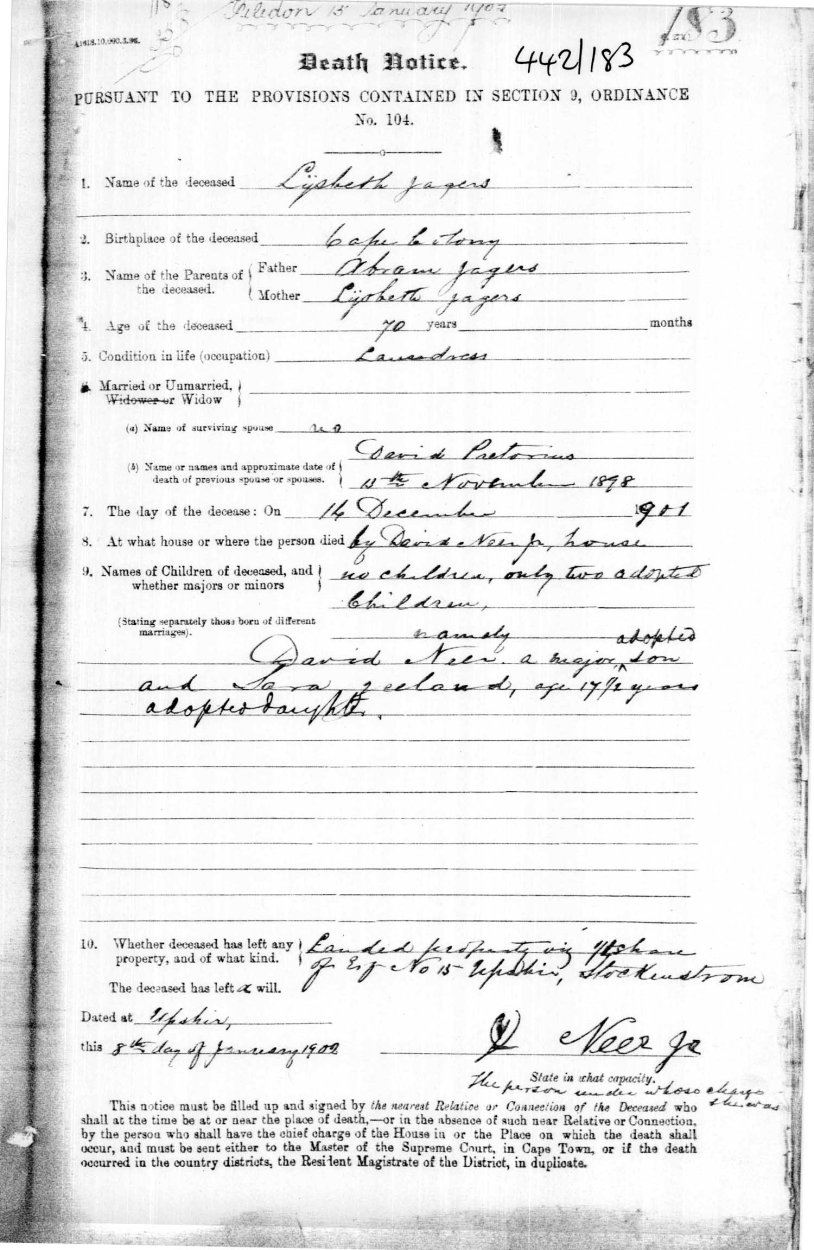 Filedon 15 January 1902
A1618.10,000.3.96.
183
Death Notice.
442/183
PURSUANT TO THE PROVISIONS CONTAINED IN SECTION 9, ORDINANCE
No. 104.
1. Name of the deceased Lijsbeth Jagers
2. Birthplace of the deceased Cape Colony
3. Name of the Parents of the deceased. Father Abram Jagers
Mother Lijsbeth Jagers
4. Age of the deceased 70 years months
5. Condition in life (occupation) Laundress
6. Married or Unmarried,
Widower or Widow
(a) Name of surviving spouse no
David Pretorius
(b) Name or names and approximate date of
death of previous spouse or spouses. 13th November 1898
7. The day of the decease: On 14 December 1901
8. At what house or where the person died by David Neer Jr, house
9. Names of Children of deceased, and no children, only two adopted
whether majors or minors
Children,
(Stating separately those born of different
marriages).
namely adopted
David Neer. a major son
and Sara Zeeland, age 17 1/2 years
adopted daughter.
10. Whether deceased has left any Landed property viz 1/2 share
property, and of what kind. of Erf No 15 Upshir, Stockenstrom
The deceased has left a will.
Dated at Upshir,
this 8th day of January 1902 D Neer Jr
State in what capacity.
The person under whose charge
she was
This notice must be filled up and signed by the nearest Relative or Connection of the Deceased who
shall at the time be at or near the place of death,—or in the absence of such near Relative or Connection,
by the person who shall have the chief charge of the House in or the Place on which the death shall
occur, and must be sent either to the Master of the Supreme Court, in Cape Town, or if the death
occurred in the country districts, the Resident Magistrate of the District, in duplicate.